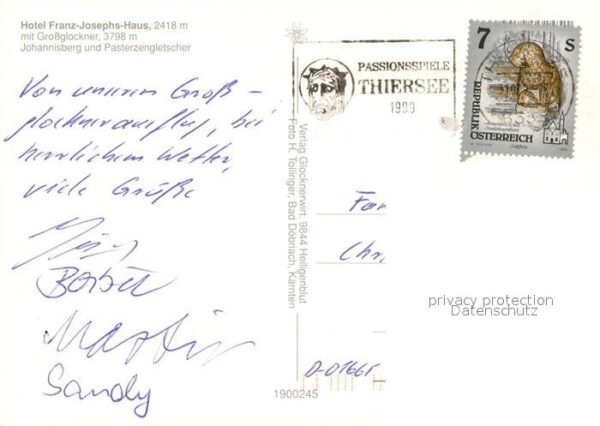 Hotel Franz-Josephs-Haus, 2418 m
mit Großglockner, 3798 m
Johannisberg und Pasterzengletscher
Von unserem Groß-
glocknerausflug, bei
herrlichem Wetter,
viele Grüße
Bärbel
Martin
Sandy
Verlag Glocknerwirt, 9844 Heiligenblut
Foto H. Tollinger, Bad Döbriach, Kärnten
1900245
PASSIONSSPIELE
THIERSEE
1999
7 S
REPUBLIK
ÖSTERREICH
Fam
Chr
D-01665
privacy protection
Datenschutz